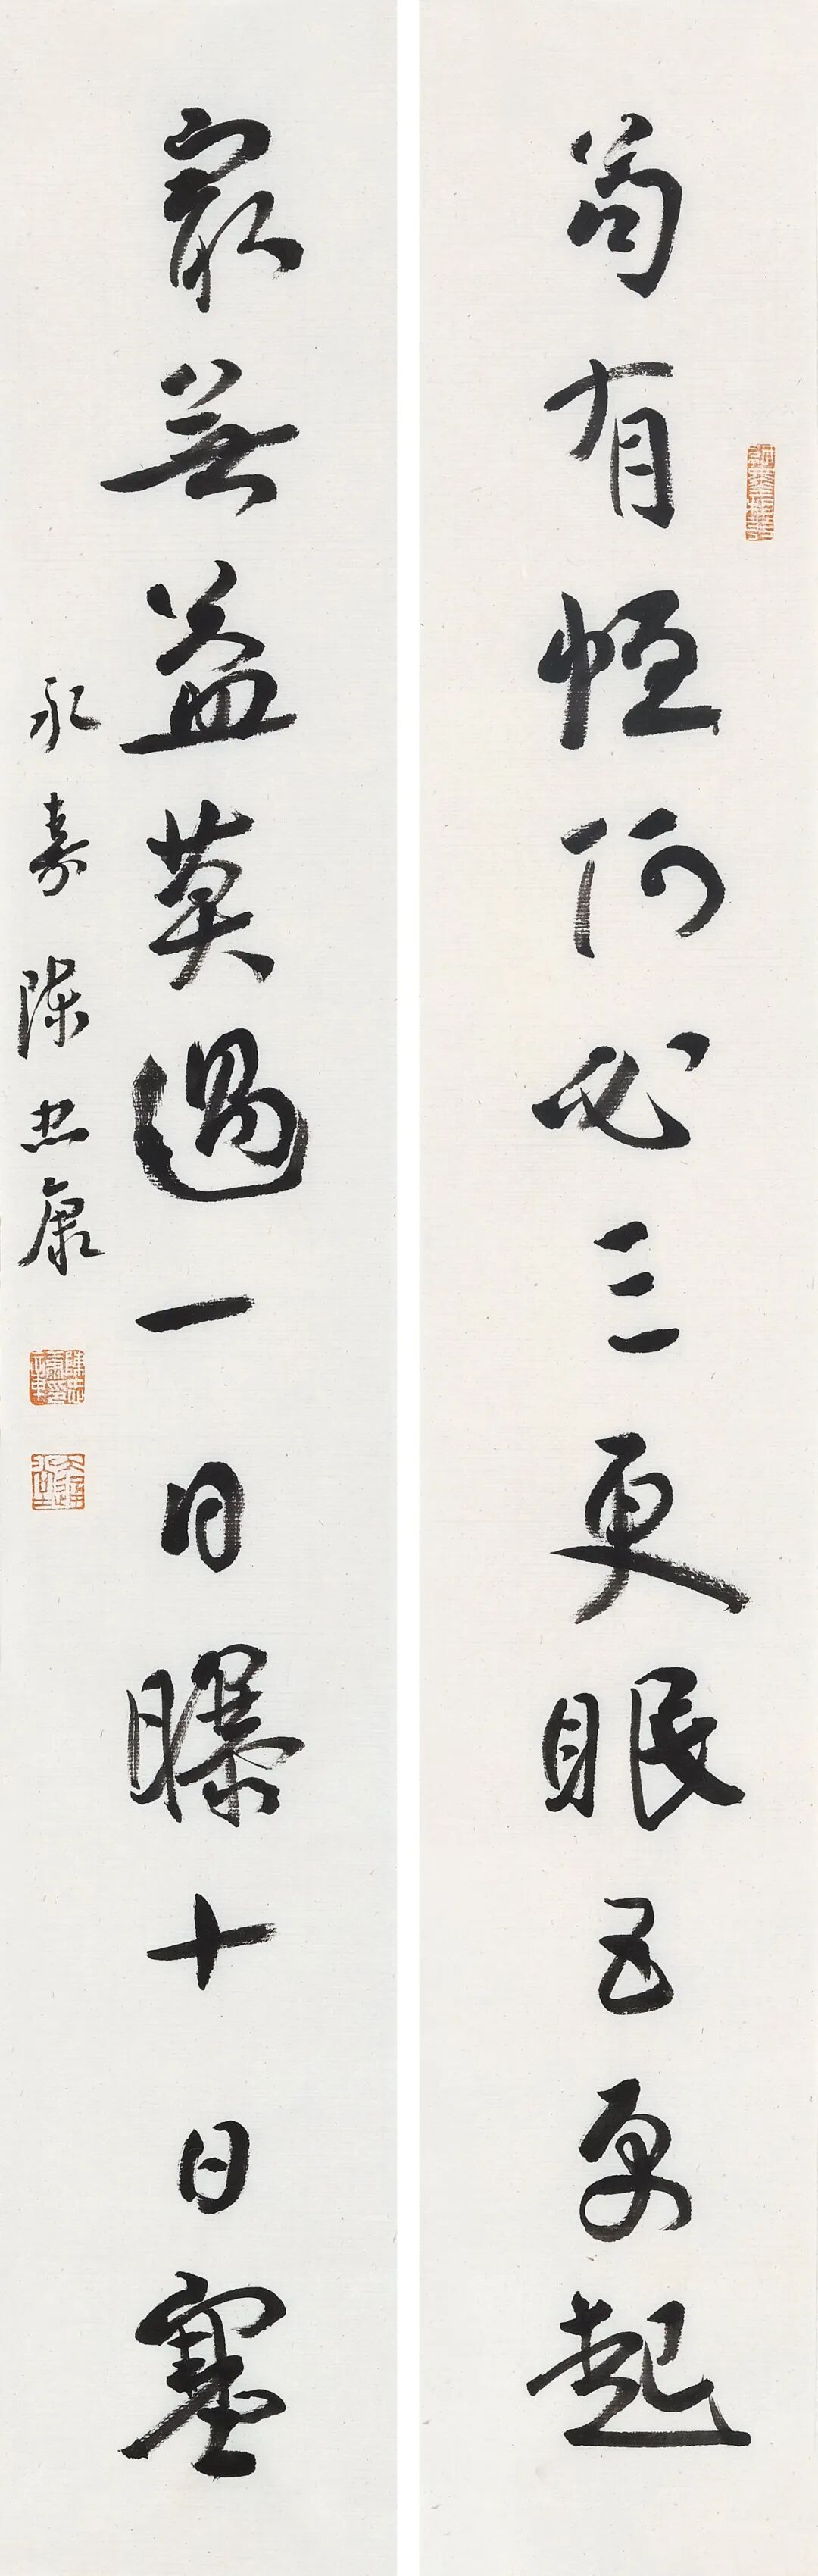 苟有恆何必三更眠五更起
最無益莫過一日曝十日寒
永嘉陳忠康